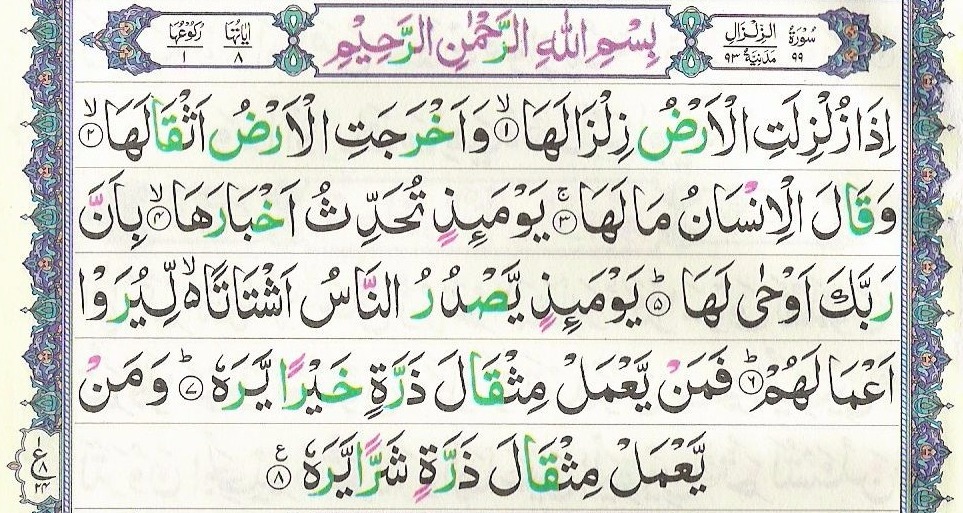 سُورَةُ الزِّلْزَالِ بِسْمِ اللهِ الرَّحْمٰنِ الرَّحِيْمِ اٰيَاتُهَا رُكُوْعُهَا
٩٩ مَدَنِيَّةٌ ٩٣ ٨ ١
اِذَا زُلْزِلَتِ الْاَرْضُ زِلْزَالَهَا ۙ‏﴿۱﴾ وَاَخْرَجَتِ الْاَرْضُ اَثْقَالَهَا ۙ‏﴿۲﴾
وَقَالَ الْاِنْسَانُ مَا لَهَا ۚ‏﴿۳﴾ يَوْمَىِٕذٍ تُحَدِّثُ اَخْبَارَهَا ۙ‏﴿۴﴾ بِاَنَّ
رَبَّكَ اَوْحٰى لَهَا ؕ‏﴿۵﴾ يَوْمَىِٕذٍ يَّصْدُرُ النَّاسُ اَشْتَاتًا ۙ۬ لِّيُرَوْا
اَعْمَالَهُمْ ؕ‏﴿۶﴾ فَمَنْ يَّعْمَلْ مِثْقَالَ ذَرَّةٍ خَيْرًا يَّرَهٗ ؕ‏﴿۷﴾ وَمَنْ
يَّعْمَلْ مِثْقَالَ ذَرَّةٍ شَرًّا يَّرَهٗ ﴿۸﴾ ع
١
ع ٨
٢٤